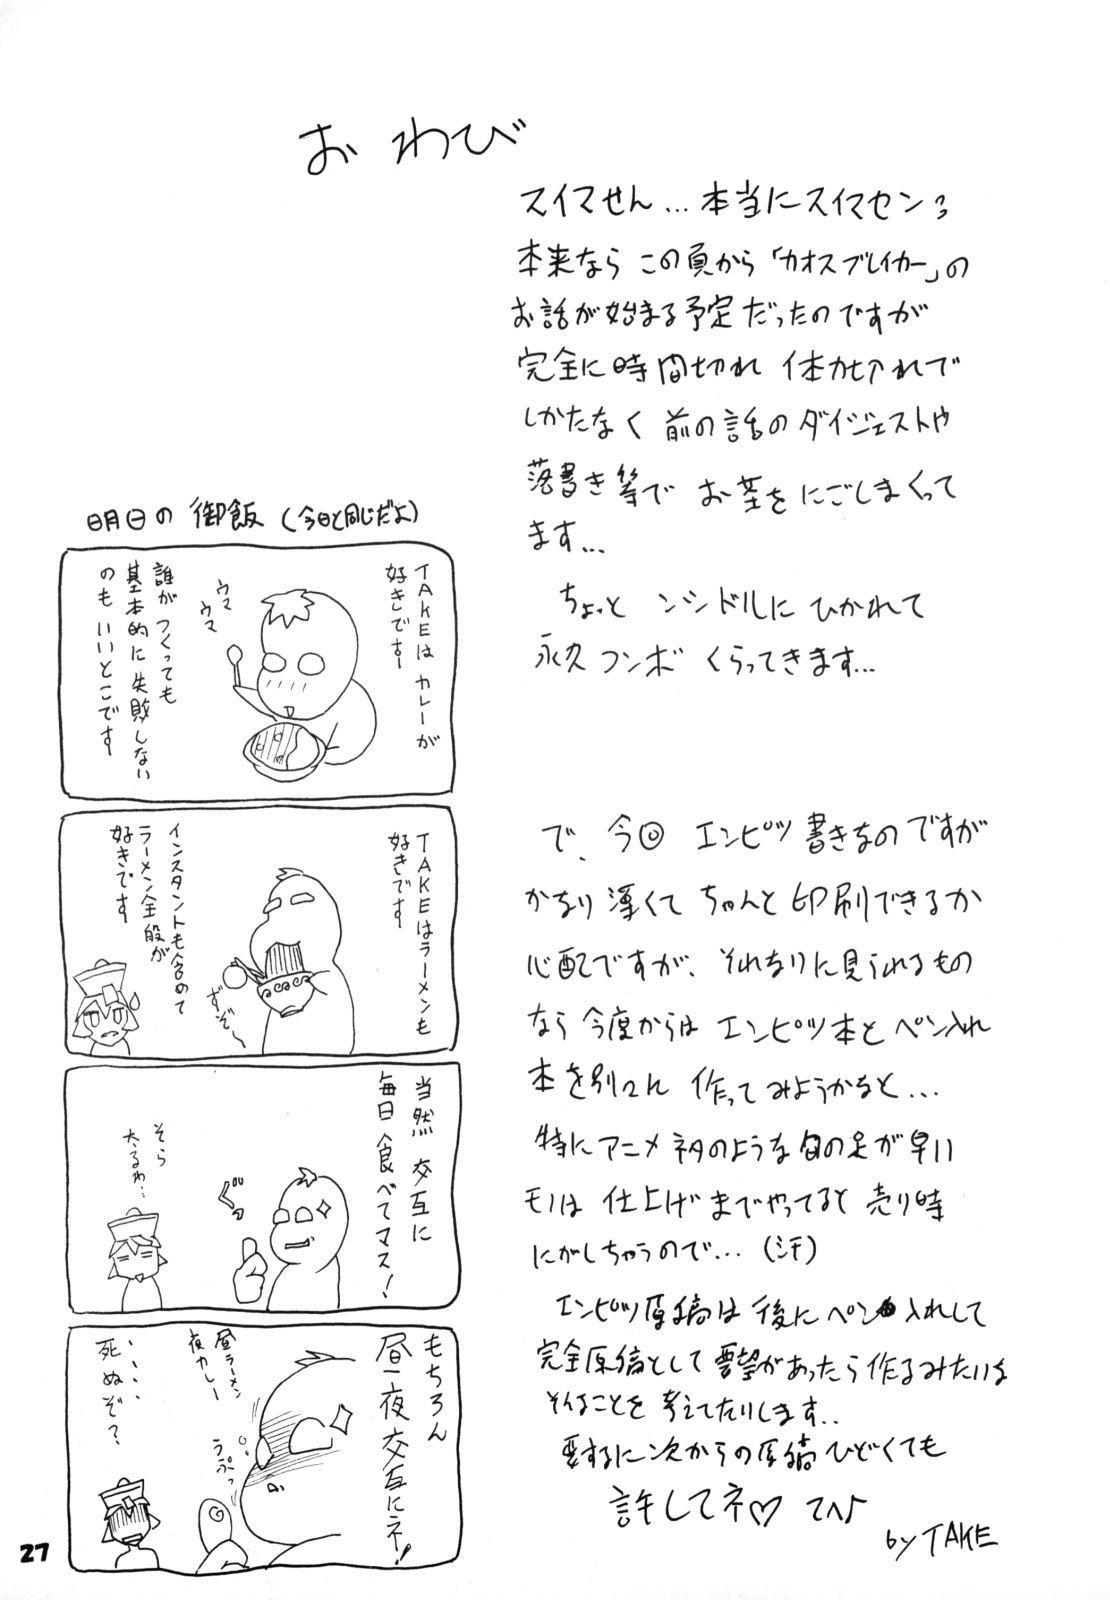 おわび
スイマせん…本当にスイマセン
本来なら この頁から「カオスブレイカー」の
お話が始まる予定だったのですが
完全に時間切れ 体力切れで
しかたなく 前の話のダイジェストや
落書き等で お茶をにごしまくって
ます…
ちょっと ンシドルに ひかれて
永久コンボ くらってきます…
で、今回 エンピツ書きなのですが
かなり薄くて ちゃんと印刷できるか
心配ですが、それなりに見られるもの
なら 今度からは エンピツ本と ペン入れ
本を別々に 作ってみようかなと…
特にアニメネタのような旬の足が早い
モノは 仕上げまでやってると 売り時
にがしちゃうので…(汗)
エンピツ原稿は 後に ペン入れして
完全原稿として 要望があったら作るみたいな
そんなことを 考えてたりします..
要するに次からの原稿ひどくても
許してネ♡ てへ♪
by TAKE
明日の 御飯 (今日と同じだよ)
TAKEは カレーが
好きです
ウマ
ウマ
誰が つくっても
基本的に失敗しない
のも いいとこです
TAKEはラーメンも
好きです
ずぞ〜
インスタントも含めて
ラーメン全般が
好きです
当然 交互に
毎日 食べてマス!
ぐっ
そら
太るわ…
もちろん
昼夜交互にネ!
昼ラーメン
夜カレー
うぷっ
・・・・
死ぬぞ?
27